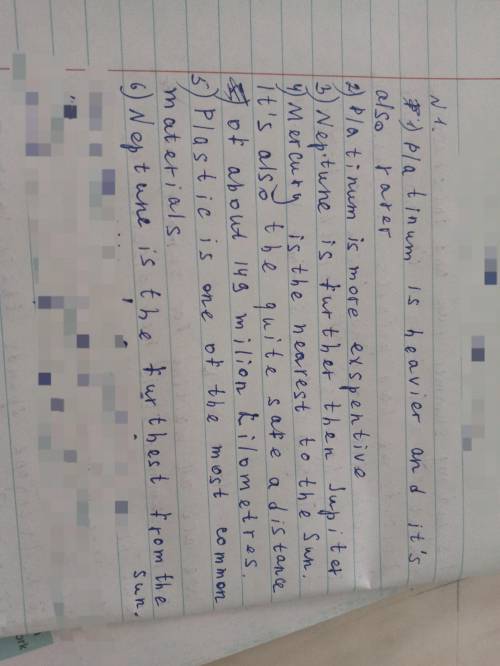 N 1.
1) Platinum is heavier and it's
also rarer
2) Platinum is more exspentive
3) Neptune is further then Jupiter
4) Mercury is the nearest to the Sun.
It's also the quite safe a distance
of about 149 milion kilometres.
5) Plastic is one of the most common
materials
6) Neptune is the furthest from the
sun.